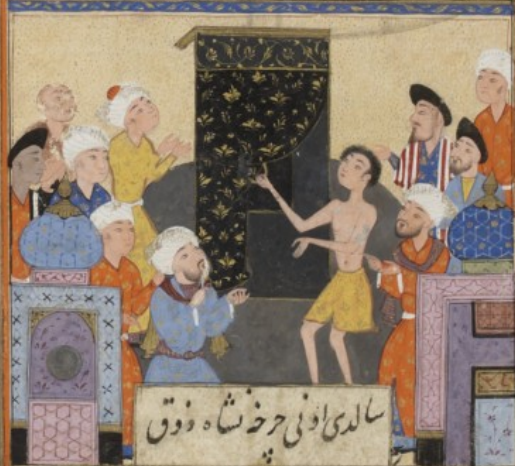 سالدی اونی چرخه نشاه ذوق